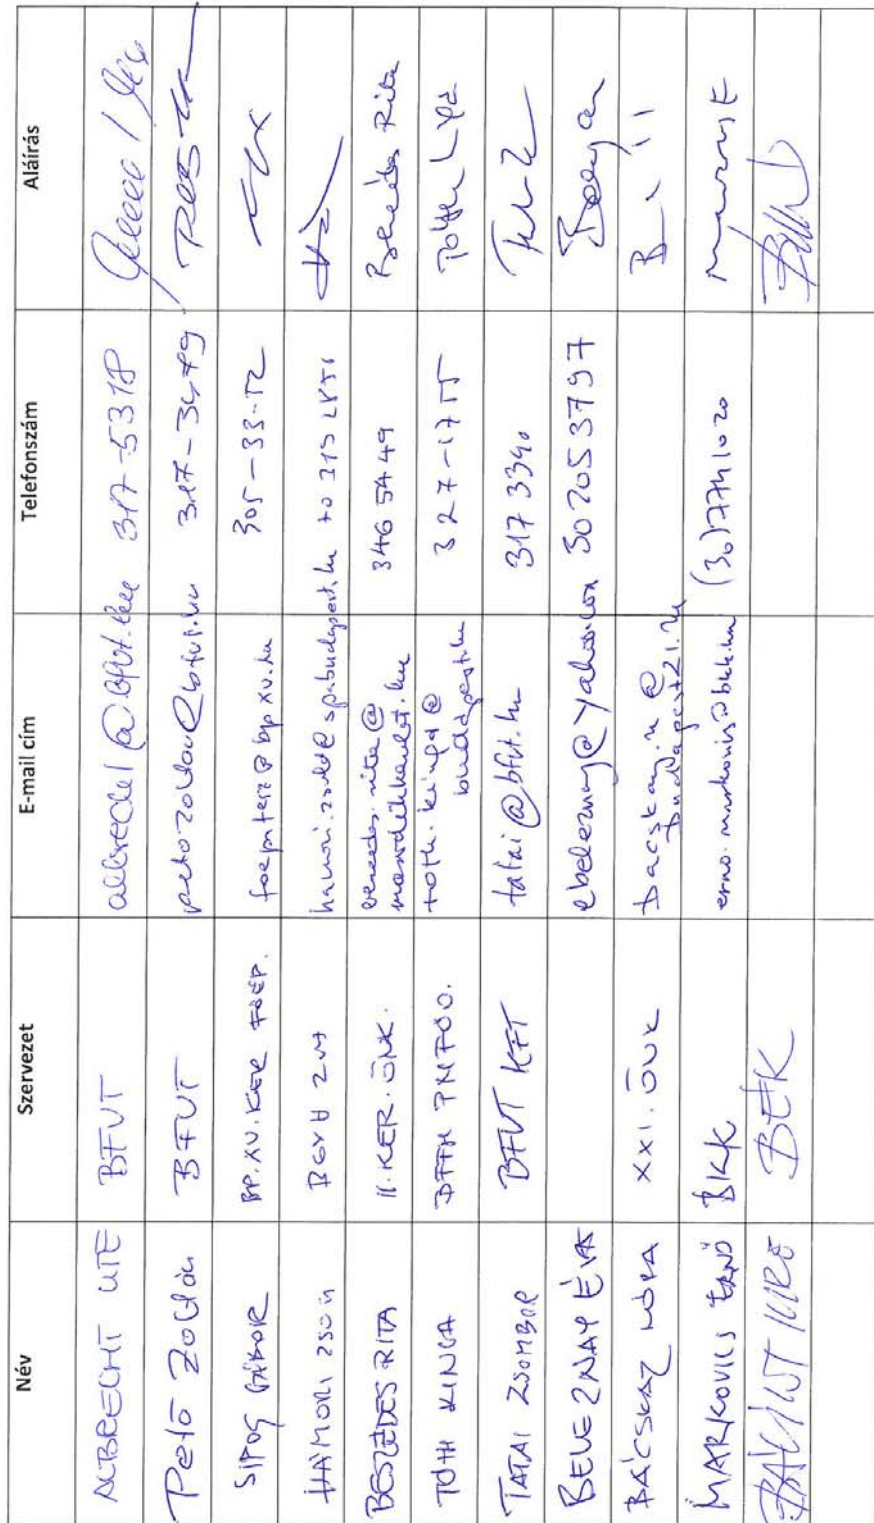 Név Szervezet E-mail cím Telefonszám Aláírás
ALBRECHT UTE BFVT albrecht@bfvt.hu 317-5318
Pető Zoltán BFVT petozoltan@bfvt.hu 317-3479
SIPOS GÁBOR BP.XV.KER FŐÉP. foepitesz@bpxv.hu 305-33-12
HÁMORI ZSOLT
BESZÉDES RITA II.KER.ÖNK. 346 5449 Beszédes Rita
TÓTH KINGA toth.kinga@
budapest.hu 327-1755
TATAI ZSOMBOR BFVT KFT tatai@bfvt.hu 317 3340
BELEZNAY ÉVA ebeleznay@yahoo.com 302053797
BÁCSKAY NÓRA XXI. ÖNK bacskay.n@
budapest21.hu
MARKOVICS ERNŐ BKK erno.markovics@bkk.hu (30)7741020
BÁLINT IMRE BÉK